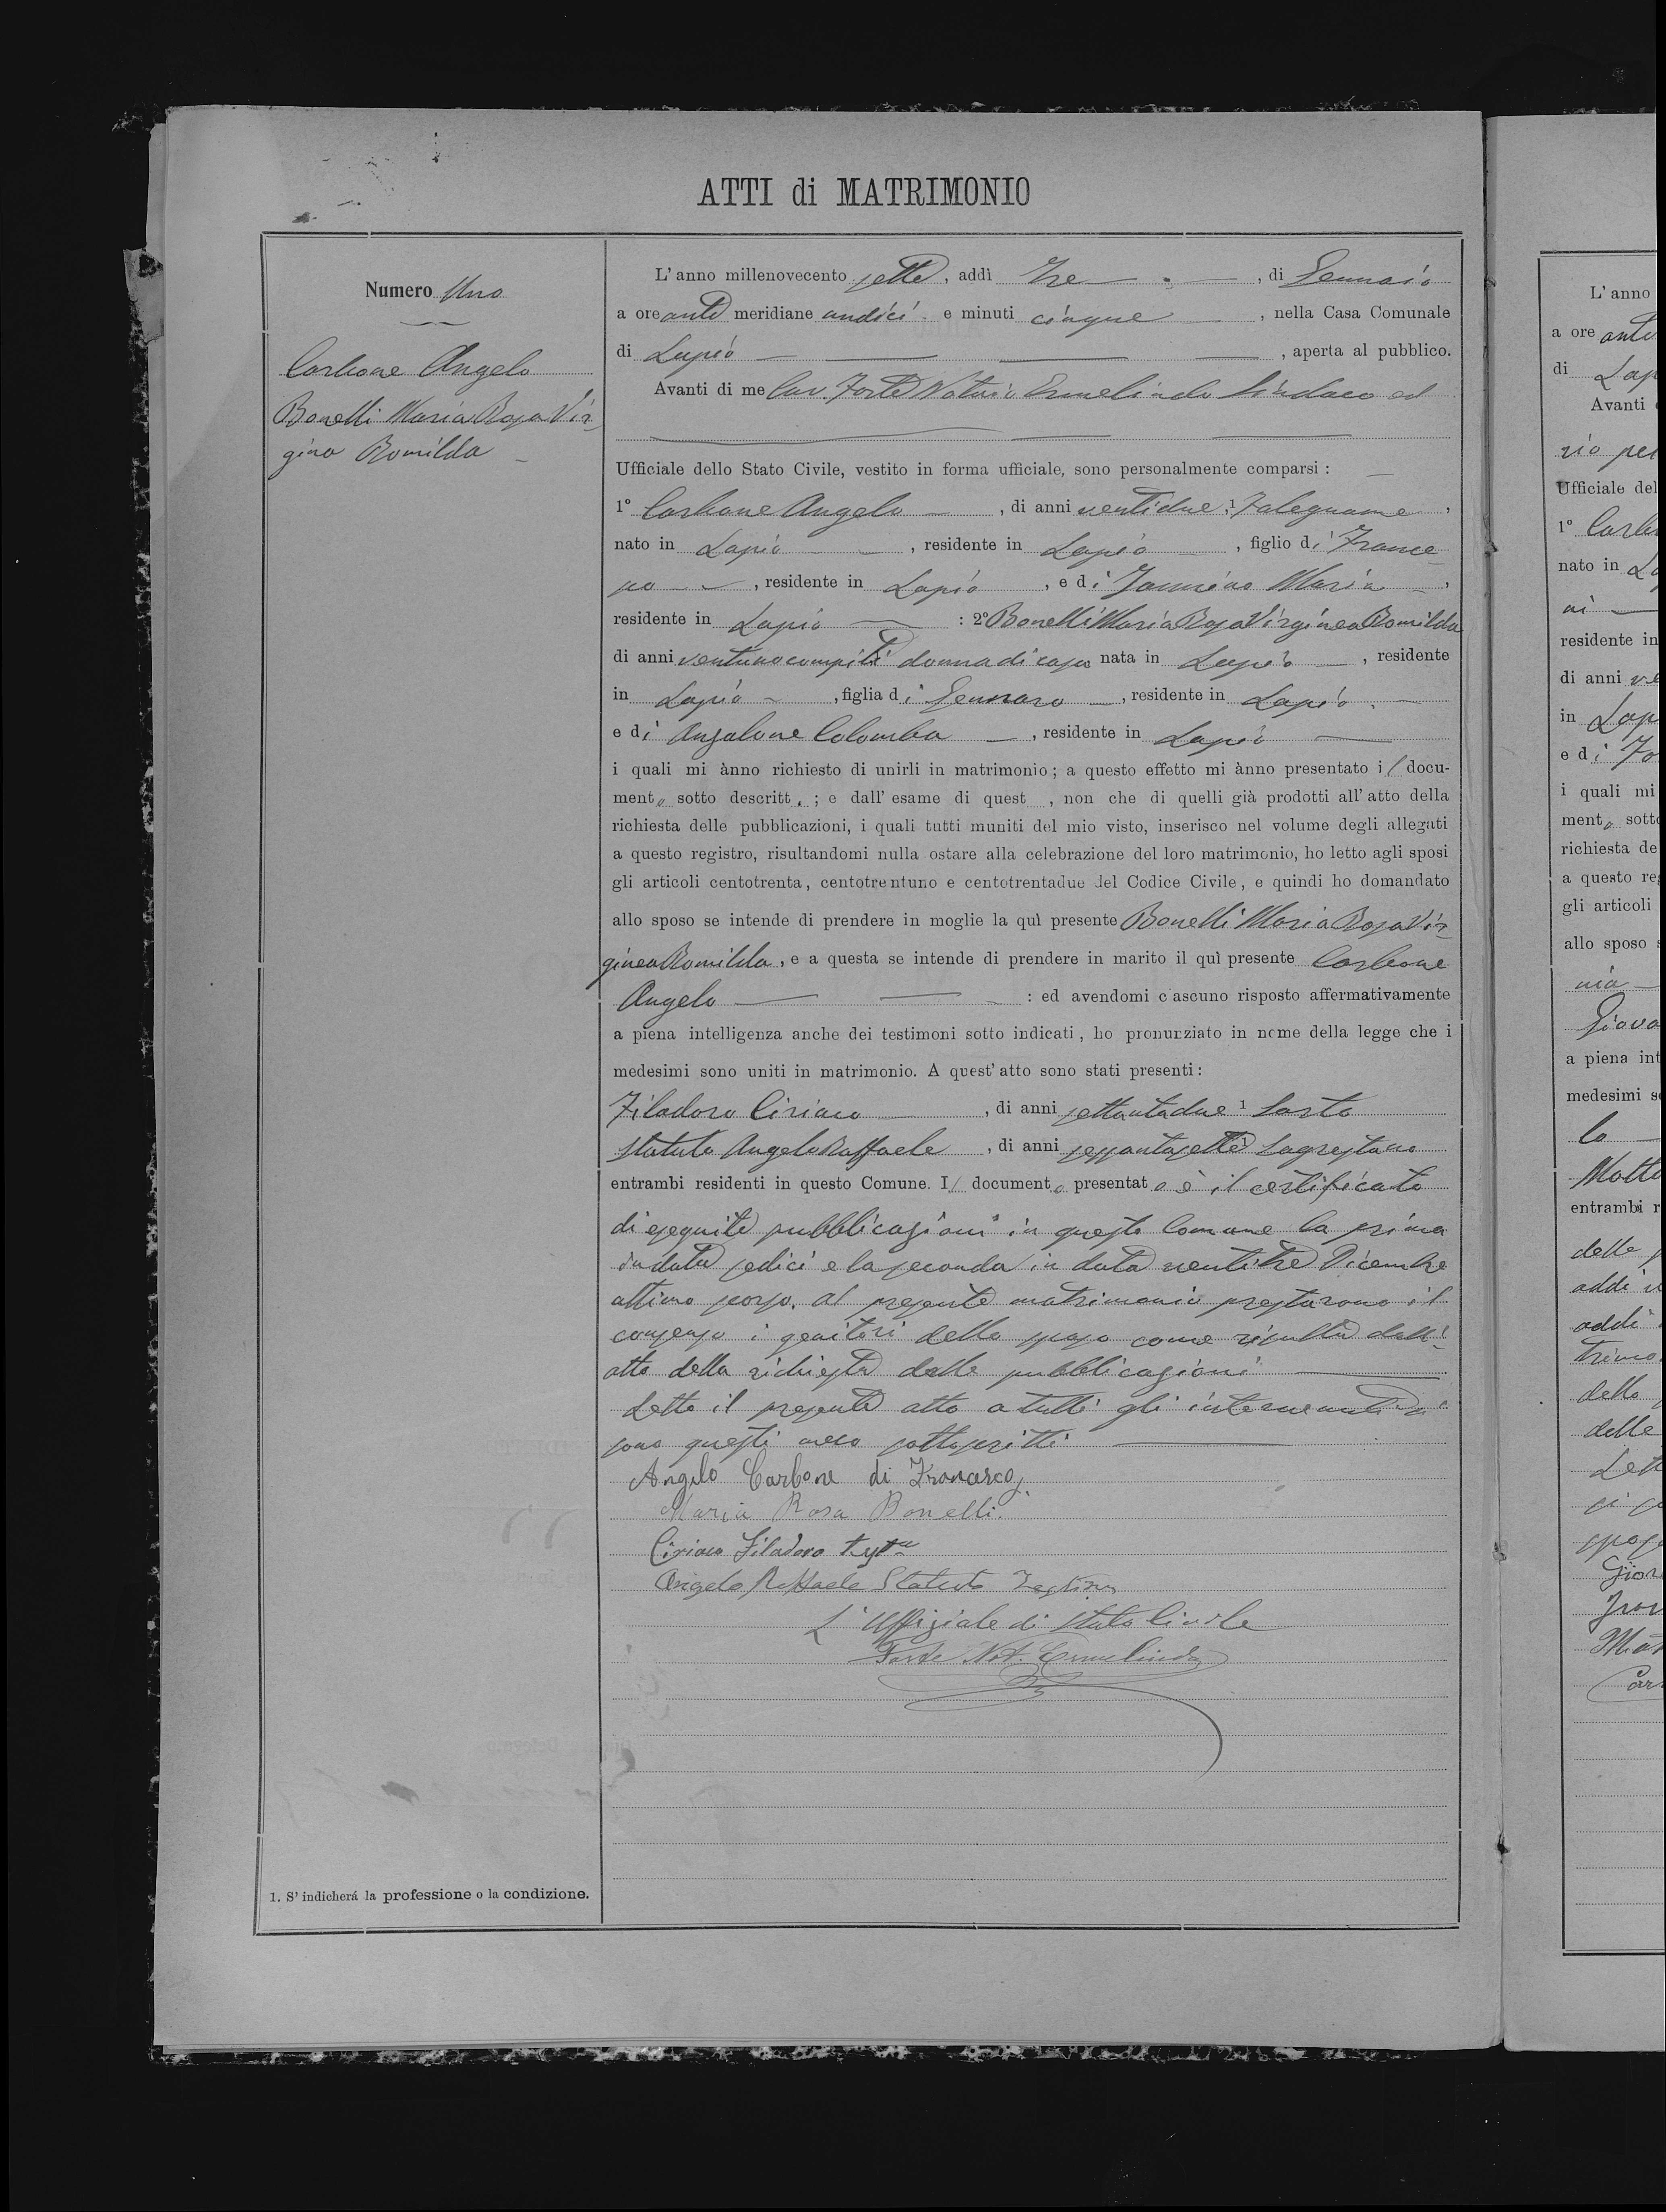 ATTI di MATRIMONIO
Numero Uno
Carbone Angelo
Bonelli Maria Rosa Vir
ginea Romilda
1. S' indicherá la professione o la condizione.
L' anno millenovecento sette, addì Tre, di Gennaio
a ore ante meridiane undici e minuti cinque, nella Casa Comunale
di Lapio, aperta al pubblico.
Avanti di me Cav. Forte Notaio Ermelindo Sindaco ed
Ufficiale dello Stato Civile, vestito in forma ufficiale, sono personalmente comparsi :
1° Carbone Angelo, di anni ventidue, 1 Falegname,
nato in Lapio, residente in Lapio, figlio di France
sco, residente in Lapio, e di Jannino Maria,
residente in Lapio : 2° Bonelli Maria Rosa Virginea Romilda
di anni ventuno compiti donna di casa nata in Lapio, residente
in Lapio, figlia di Gennaro, residente in Lapio
e di Anzalone Colomba, residente in Lapio
i quali mi ànno richiesto di unirli in matrimonio ; a questo effetto mi ànno presentato il docu-
mento sotto descritto ; e dall' esame di quest , non che di quelli già prodotti all' atto della
richiesta delle pubblicazioni, i quali tutti muniti del mio visto, inserisco nel volume degli allegati
a questo registro, risultandomi nulla ostare alla celebrazione del loro matrimonio, ho letto agli sposi
gli articoli centotrenta, centotrentuno e centotrentadue del Codice Civile, e quindi ho domandato
allo sposo se intende di prendere in moglie la quì presente Bonelli Maria Rosa Vir
ginea Romilda, e a questa se intende di prendere in marito il quì presente Carbone
Angelo : ed avendomi ciascuno risposto affermativamente
a piena intelligenza anche dei testimoni sotto indicati, ho pronunziato in nome della legge che i
medesimi sono uniti in matrimonio. A quest' atto sono stati presenti :
Filadoro Ciriaco, di anni settantadue 1 Sarto
Statuto Angelo Raffaele, di anni sessantasette 1 Sagrestano
entrambi residenti in questo Comune. Il documento presentato è il certificato
di eseguite pubblicazioni in questo Comune la prima
in data sedici e la seconda in data ventitre Dicembre
ultimo scorso. Al presente matrimonio prestarono il
consenso i genitori dello sposo come risulta dall'
atto della richiesta delle pubblicazioni
Letto il presente atto a tutti gli intervenuti si
sono questi meco sottoscritti
Angelo Carbone di Francesco
Maria Rosa Bonelli
Ciriaco Filadoro
Angelo Raffaele Statuto
L' Uffiziale di Stato Civile
Forte Not. Ermelindo
L' anno
a ore ante
di Lap
Avanti
rio per
Ufficiale del
1° Carb
nato in
residente in
di anni ve
in Lap
e di Fo
i quali mi
mento sotto
richiesta de
a questo re
gli articoli
allo sposo
nia
Giova
a piena int
medesimi s
lo
entrambi r
delle
addi
addi
dello
delle
Lett